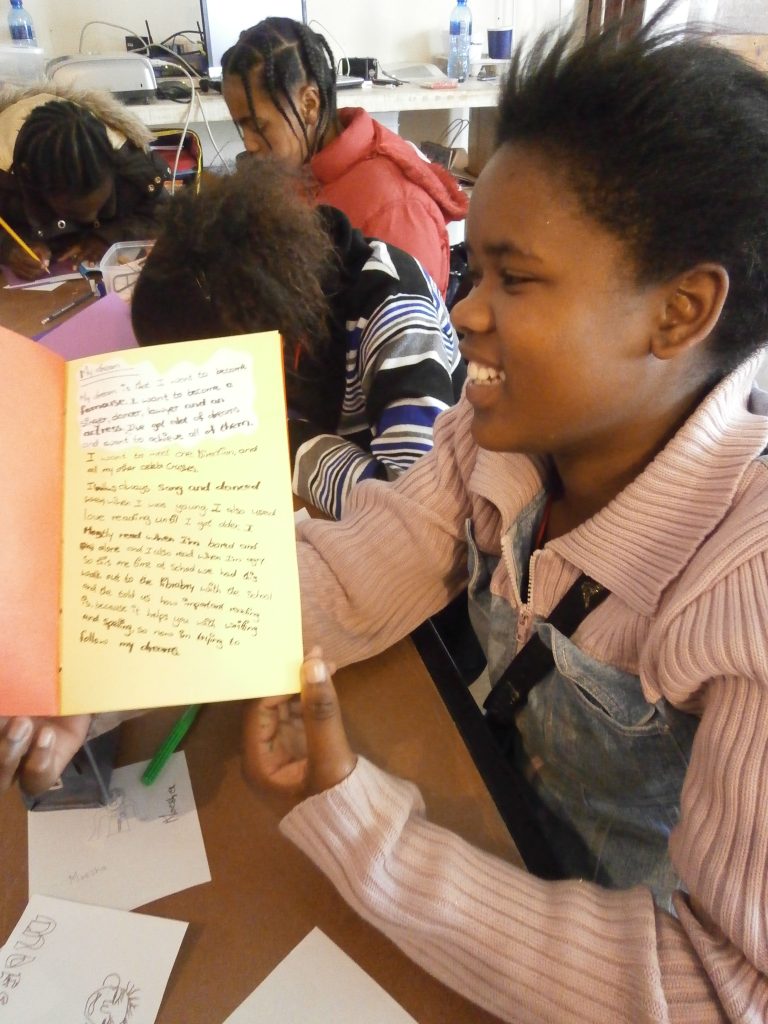 My dream
My dream is that I want to become
famouse. I want to become a
singer, dancer, lawyer and an
actress. I've got alot of dreams
and want to achieve all of them.
I want to meet one Direction, and
all my other celeb crushes.
I always sang and danced
when I was young, I also used
love reading until I got older. I
Mostly read when I'm bored and
alone and I also read when I'm
so this one time at school we had this
walk out to the library with the school
and the told us how important reading
is, because it helps you with writing
and spelling, so now im trying to
follow my dreams
Maesha
Maesha